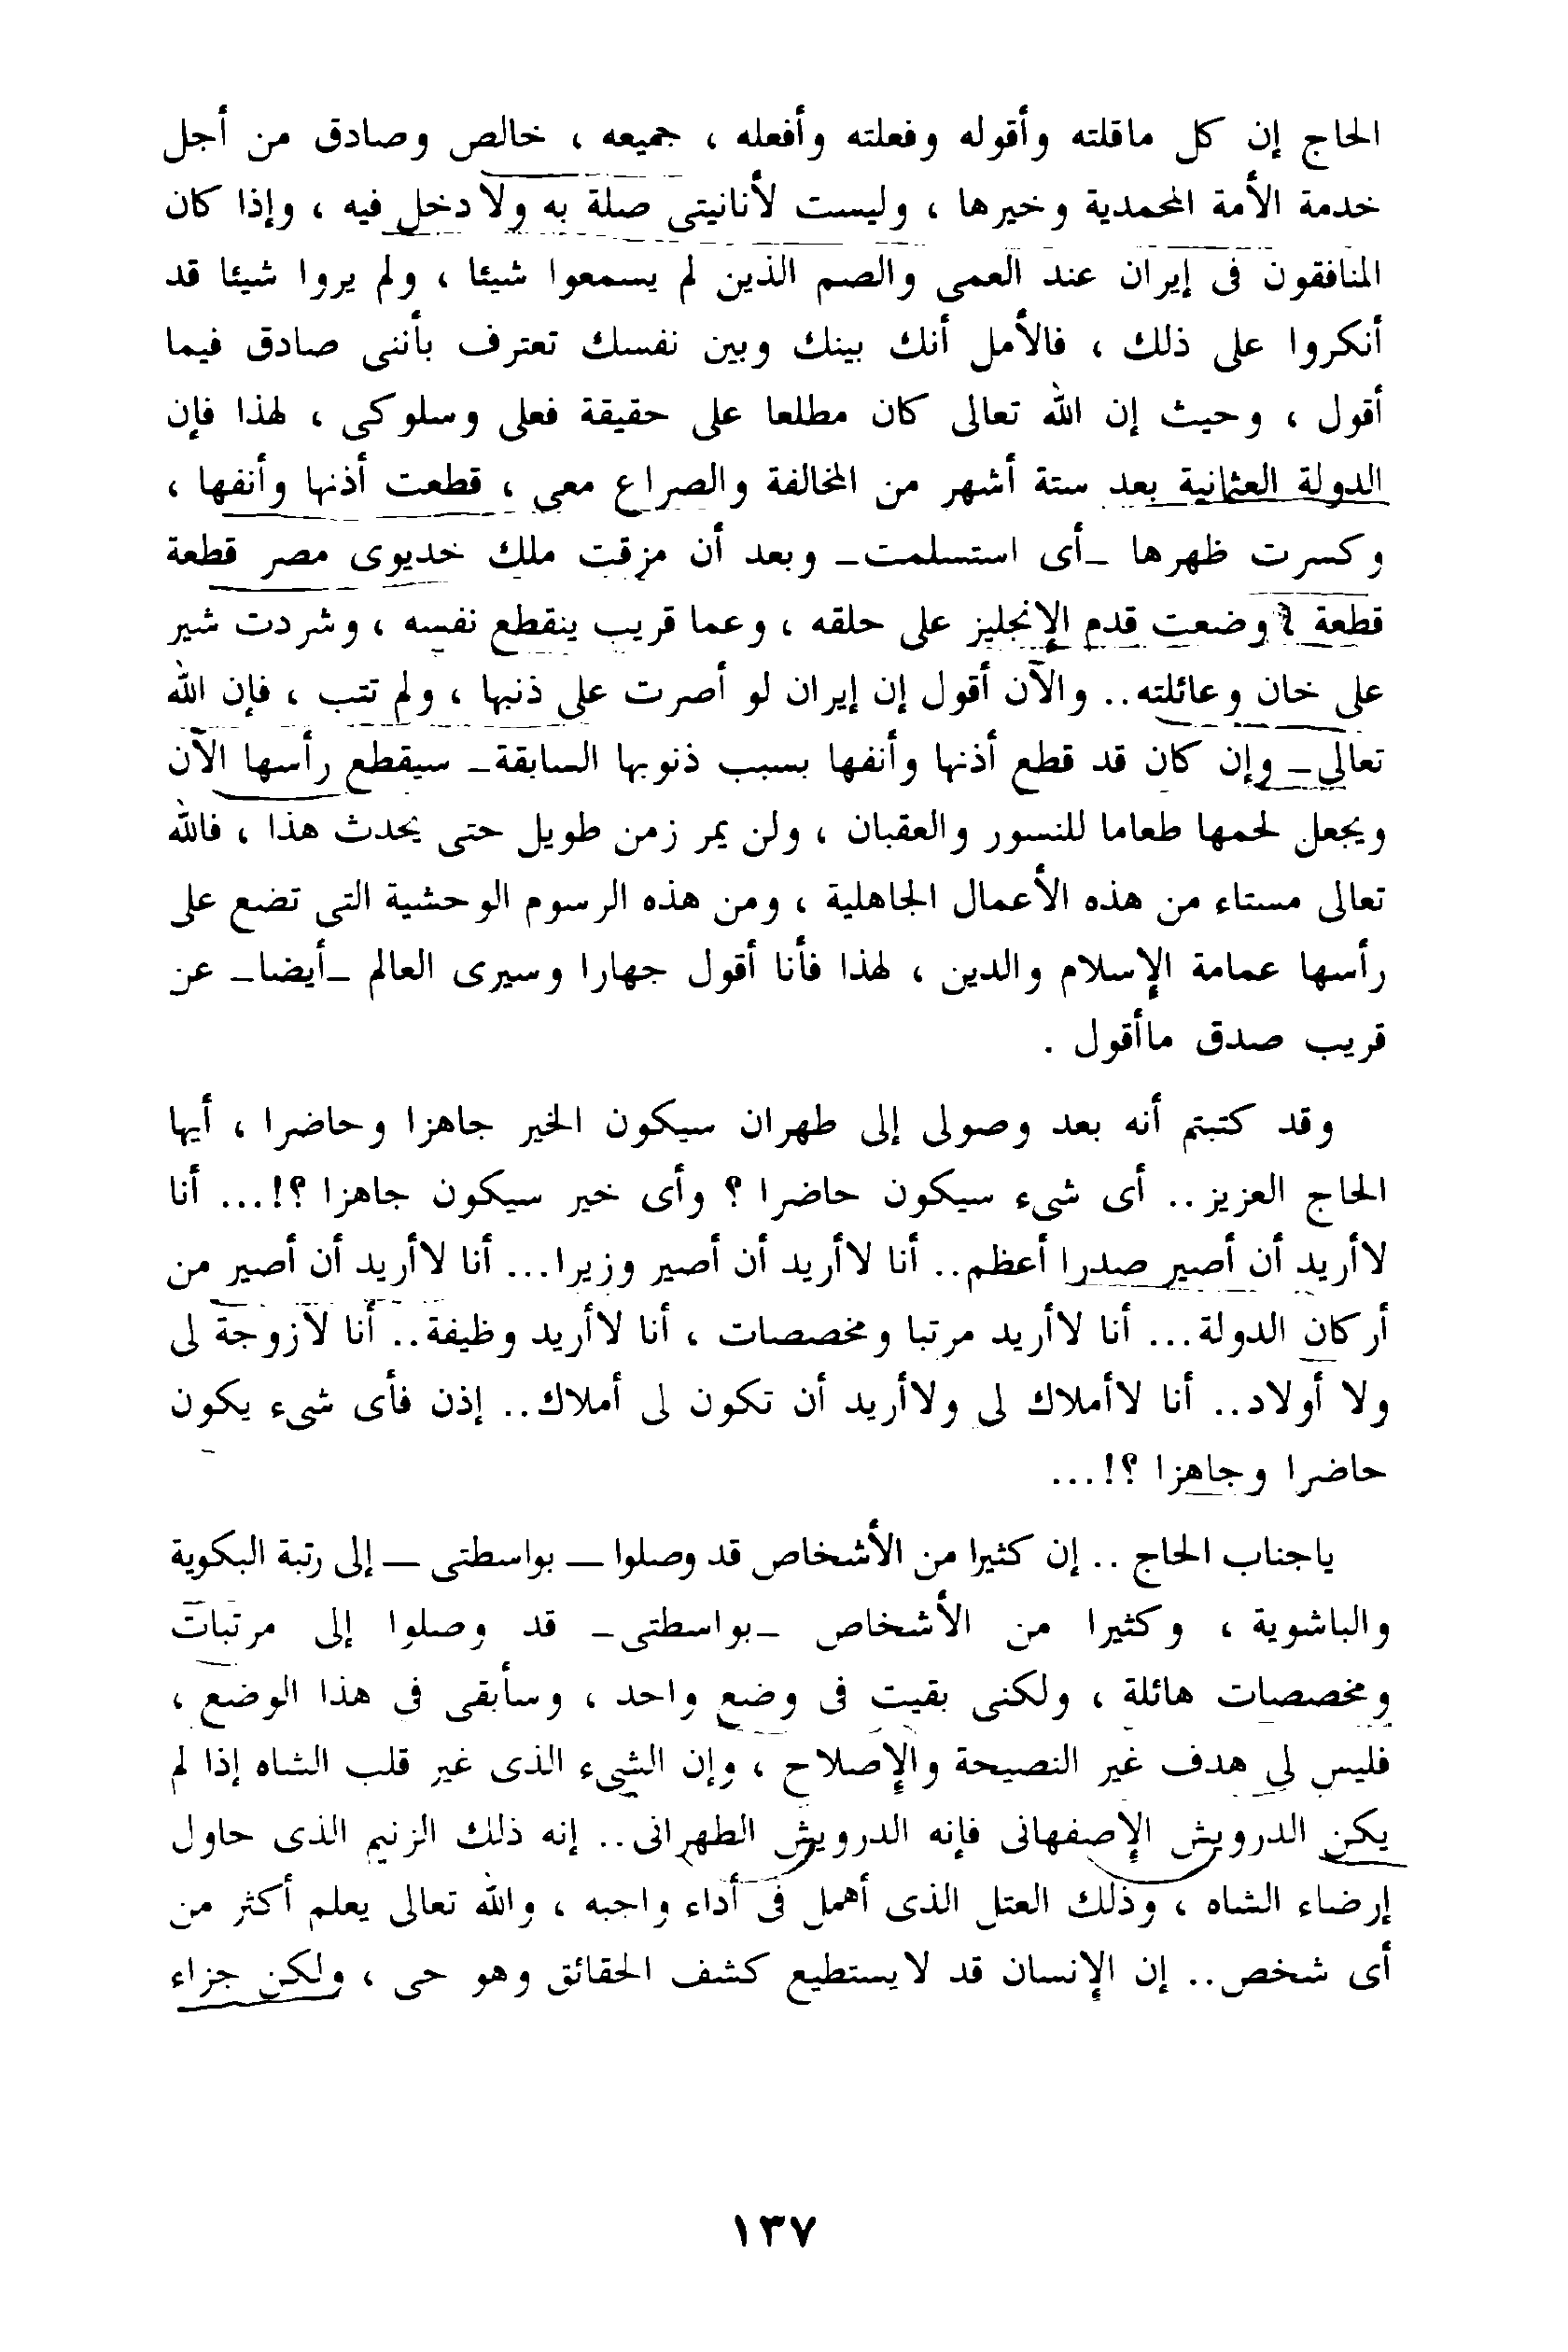 الحاج إن كل ماقلته وأقوله وفعلته وأفعله ، جميعه ، خالص وصادق من أجل
خدمة الأمة المحمدية وخيرها ، وليست لأنانيتى صلة به ولادخل فيه ، وإذا كان
المنافقون فى إيران عند العمى والصم الذين لم يسمعوا شيئا ، ولم يروا شيئا قد
أنكروا على ذلك ، فالأمل أنك بينك وبين نفسك تعترف بأننى صادق فيما
أقول ، وحيث إن الله تعالى كان مطلعا على حقيقة فعلى وسلوكى ، لهذا فإن
الدولة العثمانية بعد ستة أشهر من المخالفة والصراع معى ، قطعت أذنها وأنفها ،
وكسرت ظهرها _أى استسلمت_ وبعد أن مزقت ملك خديوى مصر قطعة
قطعة وضعت قدم الإنجليز على حلقه ، وعما قريب ينقطع نفسه ، وشردت شير
على خان وعائلته .. والآن أقول إن إيران لو أصرت على ذنبها ، ولم تتب ، فإن الله
تعالى _ وإن كان قد قطع أذنها وأنفها بسبب ذنوبها السابقة_ سيقطع رأسها الآن
ويجعل لحمها طعاما للنسور والعقبان ، ولن يمر زمن طويل حتى يحدث هذا ، فالله
تعالى مستاء من هذه الأعمال الجاهلية ، ومن هذه الرسوم الوحشية التى تضع على
رأسها عمامة الإسلام والدين ، لهذا فأنا أقول جهارا وسيرى العالم _أيضا_ عن
قريب صدق ماأقول .
وقد كتبتم أنه بعد وصولى إلى طهران سيكون الخير جاهزا وحاضرا ، أيها
الحاج العزيز .. أى شىء سيكون حاضرا ؟ وأى خير سيكون جاهزا ؟!... أنا
لاأريد أن أصير صدرا أعظم.. أنا لاأريد أن أصير وزيرا... أنا لاأريد أن أصير من
أركان الدولة... أنا لاأريد مرتبا ومخصصات ، أنا لاأريد وظيفة.. أنا لازوجة لى
ولا أولاد.. أنا لاأملاك لى ولاأريد أن تكون لى أملاك.. إذن فأى شىء يكون
حاضرا وجاهزا ؟!...
ياجناب الحاج .. إن كثيرا من الأشخاص قد وصلوا _ بواسطتى _ إلى رتبة البكوية
والباشوية ، وكثيرا من الأشخاص _بواسطتى_ قد وصلوا إلى مرتبات
ومخصصات هائلة ، ولكنى بقيت فى وضع واحد ، وسأبقى فى هذا الوضع ،
فليس لى هدف غير النصيحة والإصلاح ، وإن الشىء الذى غير قلب الشاه إذا لم
يكن الدرويش الإصفهانى فإنه الدرويش الطهرانى.. إنه ذلك الزنيم الذى حاول
إرضاء الشاه ، وذلك العتل الذى أهمل فى أداء واجبه ، والله تعالى يعلم أكثر من
أى شخص.. إن الإنسان قد لايستطيع كشف الحقائق وهو حى ، ولكن جزاء
١٣٧